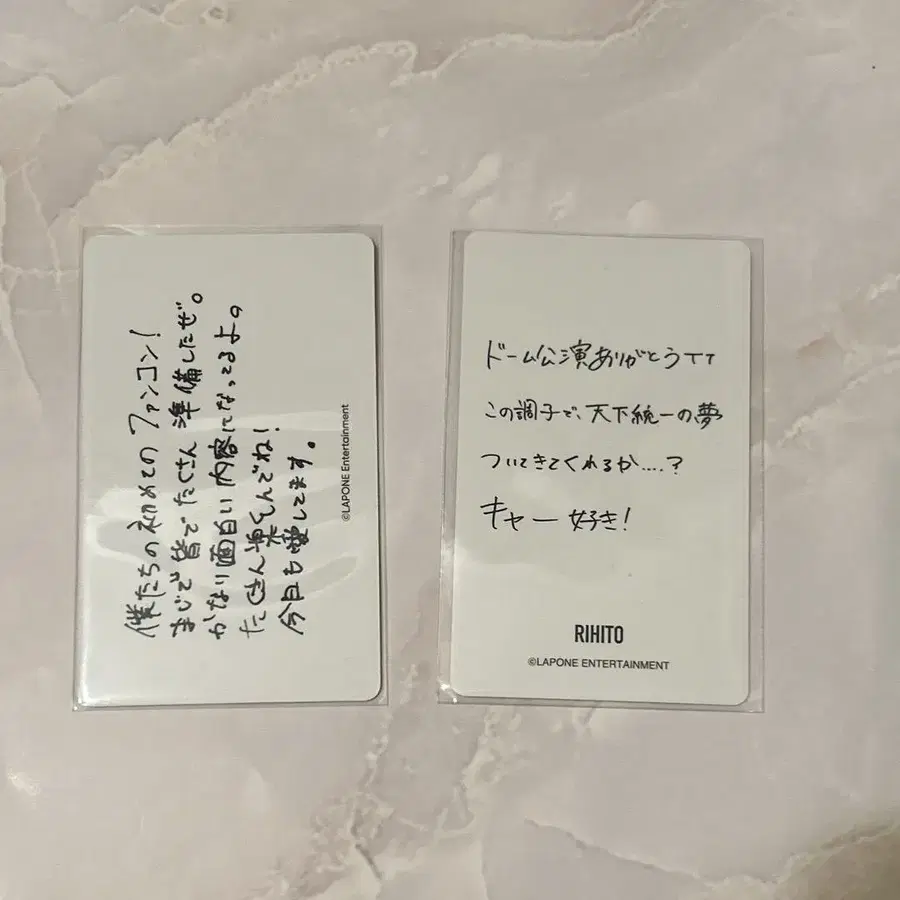 僕たちの初めてのファンコン!
まじで皆でたくさん準備したぜ。
かなり面白い内容になってるよ。
たくさん楽しんでね!
今日も愛してます。
©LAPONE Entertainment
ドーム公演ありがとうTT
この調子で、天下統一の夢
ついてきてくれるか....?
キャー 好き!
RIHITO
©LAPONE ENTERTAINMENT